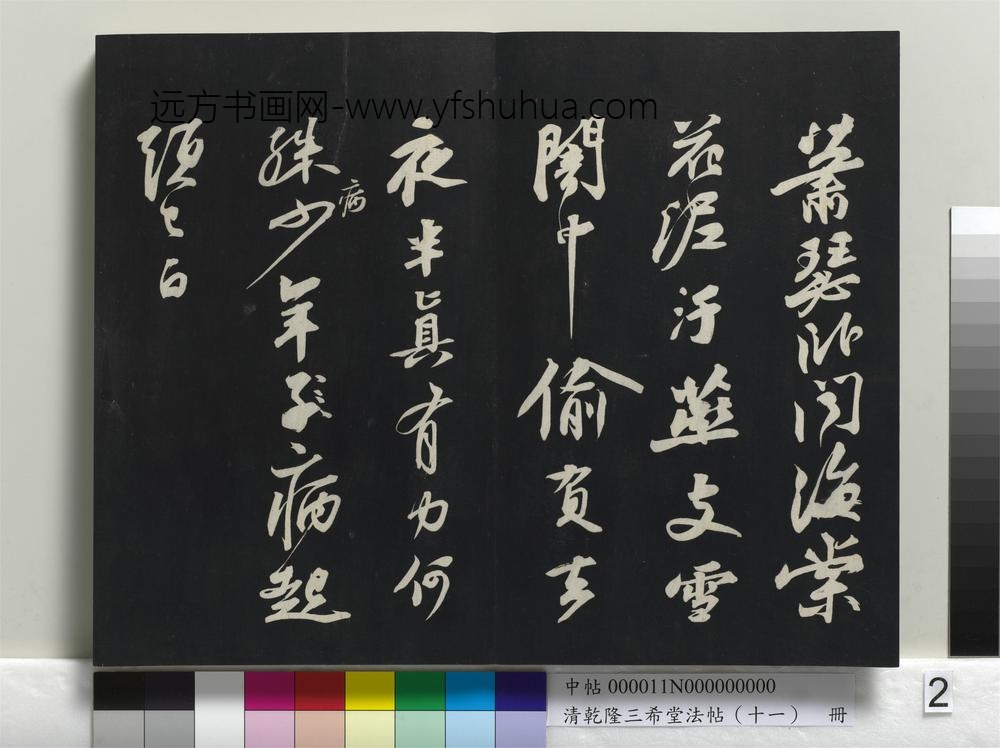 远方书画网-www.yfshuhua.com
蕭瑟卧聞海棠
花泥汙燕支雪
闇中偷負去
夜半眞有力何
殊病少年子病起
頭已白
中帖 000011N000000000
清乾隆三希堂法帖（十一） 冊
2